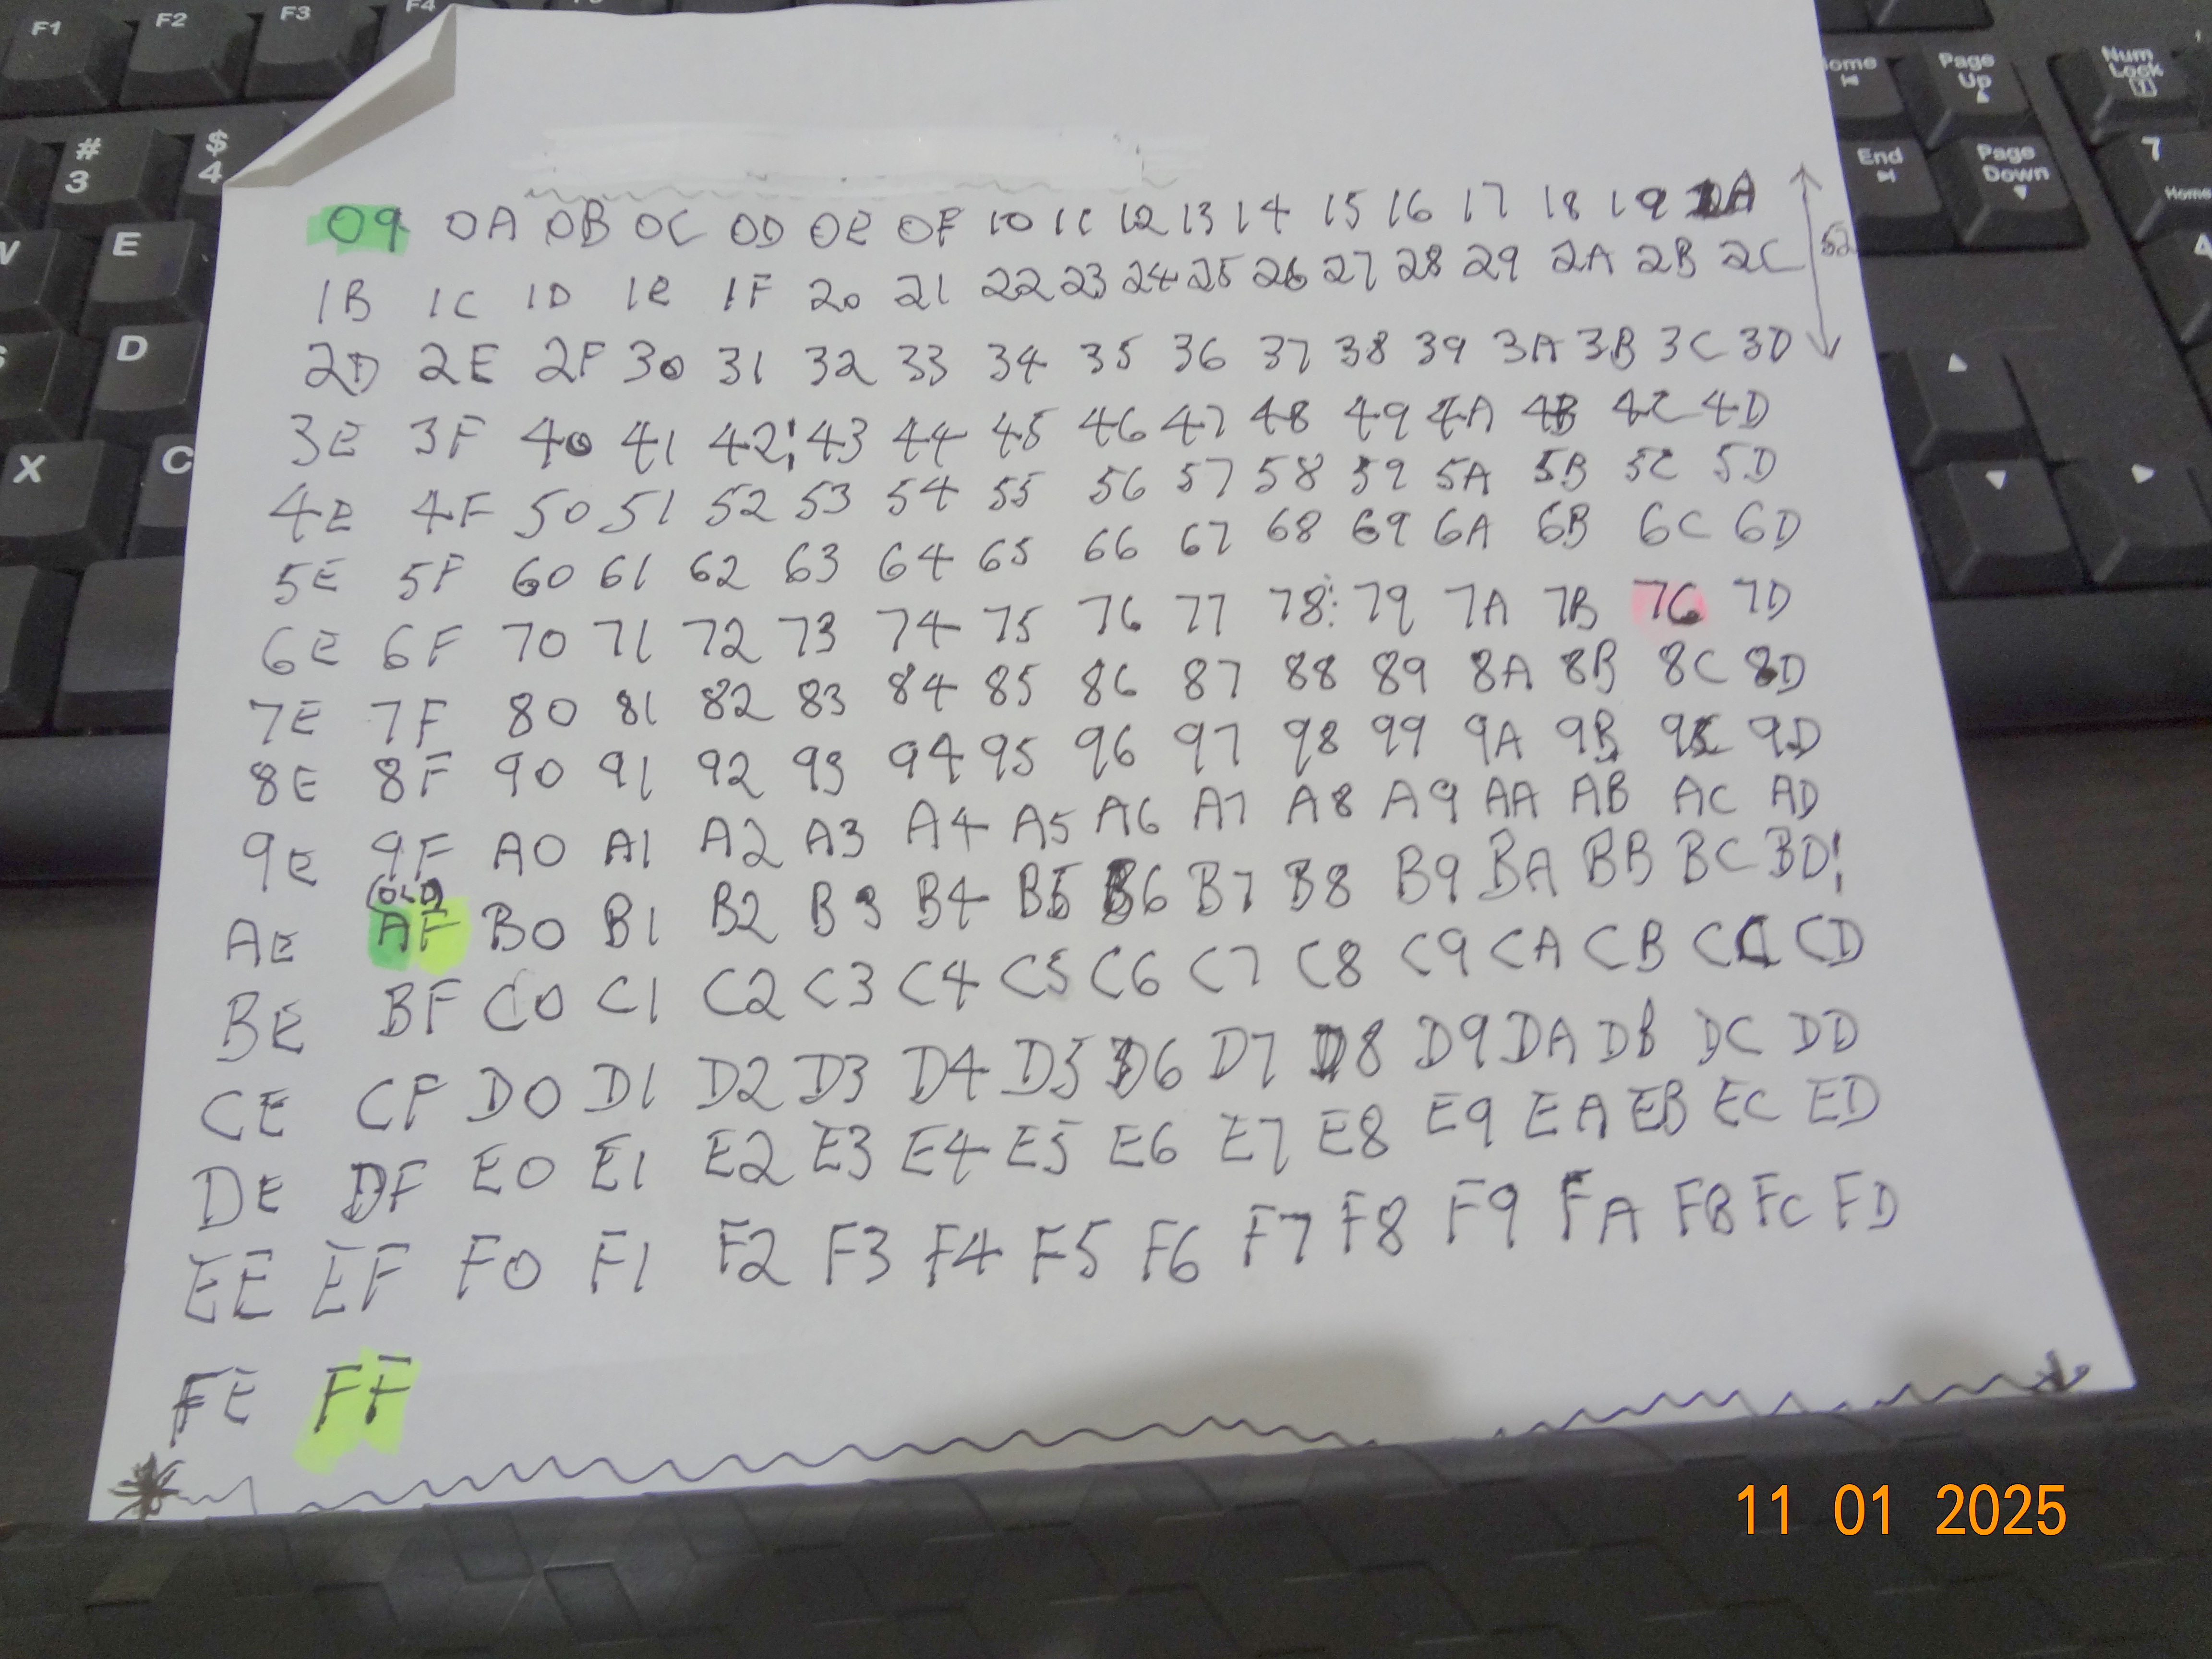 F1 F2 F3 F4
ome Page Up Num Lock
# 3 $ 4
End Page Down 7 Home
E
D
X C
09 0A 0B 0C 0D 0E 0F 10 11 12 13 14 15 16 17 18 19 1A
52
1B 1C 1D 1E 1F 20 21 22 23 24 25 26 27 28 29 2A 2B 2C
2D 2E 2F 30 31 32 33 34 35 36 37 38 39 3A 3B 3C 3D
3E 3F 40 41 42! 43 44 45 46 47 48 49 4A 4B 4C 4D
4E 4F 50 51 52 53 54 55 56 57 58 59 5A 5B 5C 5D
5E 5F 60 61 62 63 64 65 66 67 68 69 6A 6B 6C 6D
6E 6F 70 71 72 73 74 75 76 77 78: 79 7A 7B 7C 7D
7E 7F 80 81 82 83 84 85 86 87 88 89 8A 8B 8C 8D
8E 8F 90 91 92 93 94 95 96 97 98 99 9A 9B 9C 9D
9E 9F A0 A1 A2 A3 A4 A5 A6 A7 A8 A9 AA AB AC AD
(OLD)
AE AF B0 B1 B2 B3 B4 B5 B6 B7 B8 B9 BA BB BC BD!
BE BF C0 C1 C2 C3 C4 C5 C6 C7 C8 C9 CA CB CC CD
CE CF D0 D1 D2 D3 D4 D5 D6 D7 D8 D9 DA DB DC DD
DE DF E0 E1 E2 E3 E4 E5 E6 E7 E8 E9 EA EB EC ED
EE EF F0 F1 F2 F3 F4 F5 F6 F7 F8 F9 FA FB FC FD
FE FF
11 01 2025